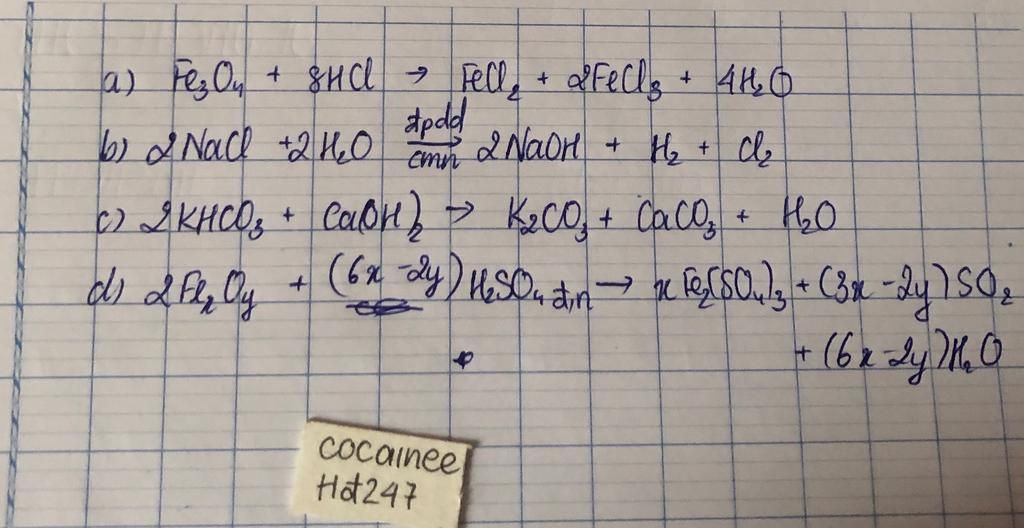 a) Fe₃O₄ + 8HCl → FeCl₂ + 2FeCl₃ + 4H₂O
đpdd
b) 2NaCl + 2H₂O → 2NaOH + H₂ + Cl₂
cmn
c) 2KHCO₃ + Ca(OH)₂ → K₂CO₃ + CaCO₃ + H₂O
d) 2FeₓOy + (6x - 2y) H₂SO₄ đ,n → xFe₂(SO₄)₃ + (3x - 2y) SO₂
+ (6x - 2y) H₂O
cocainee
Hot247